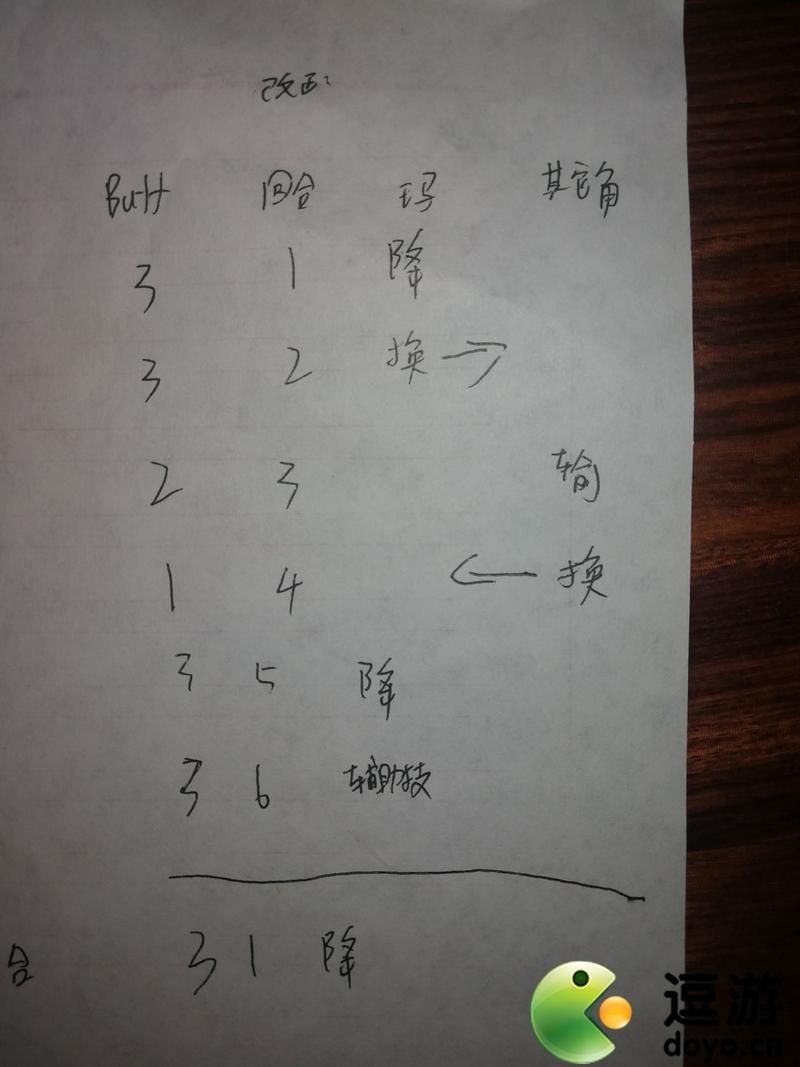 改正:
Buff 回合 玛 其它角
3 1 降
3 2 换 →
2 3 输
1 4 ← 换
3 5 降
3 6 辅助技
合 3 1 降
逗游
doyo.cn